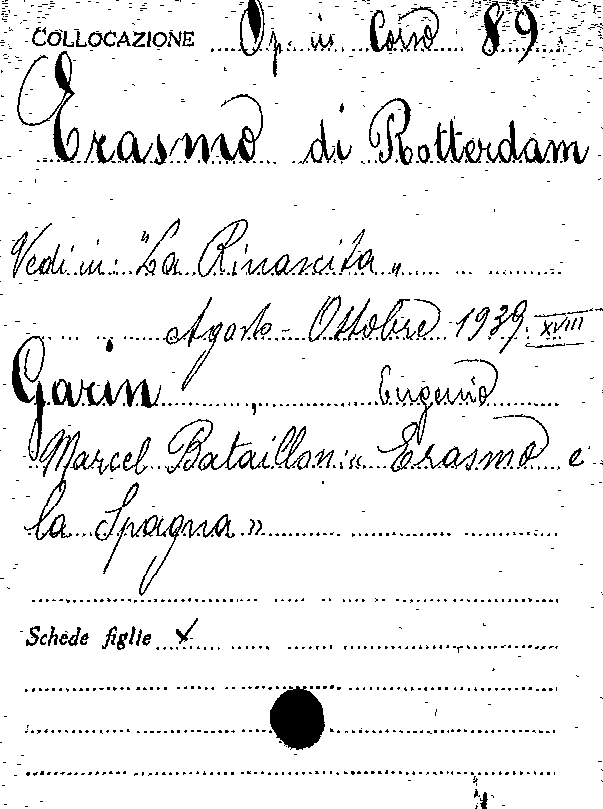 COLLOCAZIONE Op. in Corso 89
Erasmo di Rotterdam
Vedi in: "La Rinascita"
Agosto - Ottobre 1939 XVIII
Garin, Eugenio
Marcel Bataillon: « Erasmo e
la Spagna »
Schede figlie x